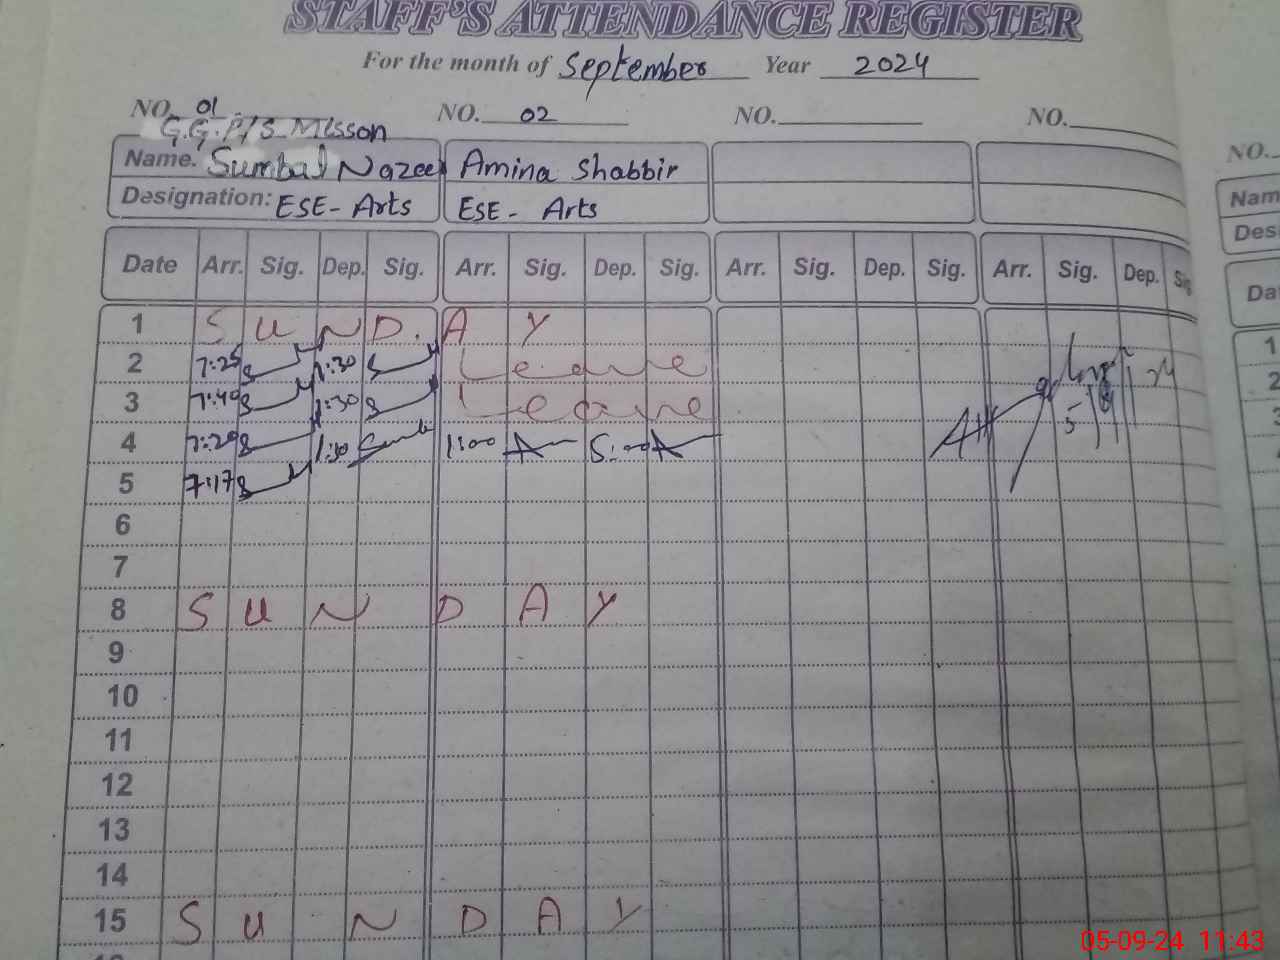 STAFF'S ATTENDANCE REGISTER
For the month of September Year 2024
NO. 01 NO. 02 NO. NO. NO.
G.G.P/S Misson
Name. Sumbal Nazeer Amina Shabbir Nam
Designation: ESE - Arts ESE - Arts Des
Date Arr. Sig. Dep. Sig. Arr. Sig. Dep. Sig. Arr. Sig. Dep. Sig. Arr. Sig. Dep. Sig Da
1 S U N D. A Y 1
2 7:25 1:30 Leave 2
3 7:40 1:30 Leave
4 7:20 1:30 1:00 5:00
5 7:17
6
7
8 S U N D A Y
9
10
11
12
13
14
15 S U N D A Y
05-09-24 11:43